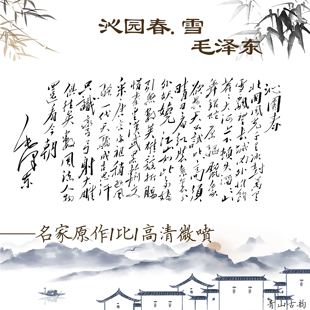 沁园春.雪
毛泽东
沁園春
北国风光千里冰封万里
雪飘望长城内外惟余莽
莽大河上下顿失滔滔山
舞银蛇原驰蜡象
欲与天公试比高须
晴日看红装素裹分
外妖娆江山如此多娇
引无数英雄竞折腰
惜秦皇汉武略输文
采唐宗宋祖稍逊风
骚一代天骄成吉思汗
只識弯弓射大雕
俱往矣数风流人物
還看今朝
毛泽东
——名家原作1比1高清微喷
青山古韵